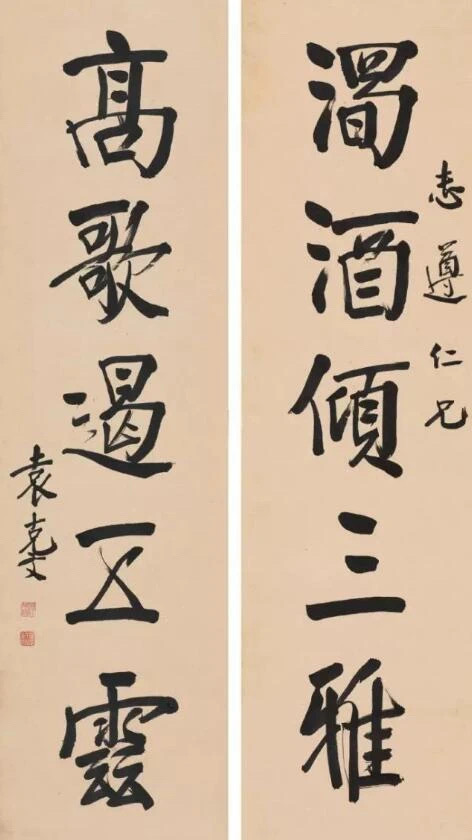 酒傾三雅
志遵仁兄
高歌遏五雲
袁克文